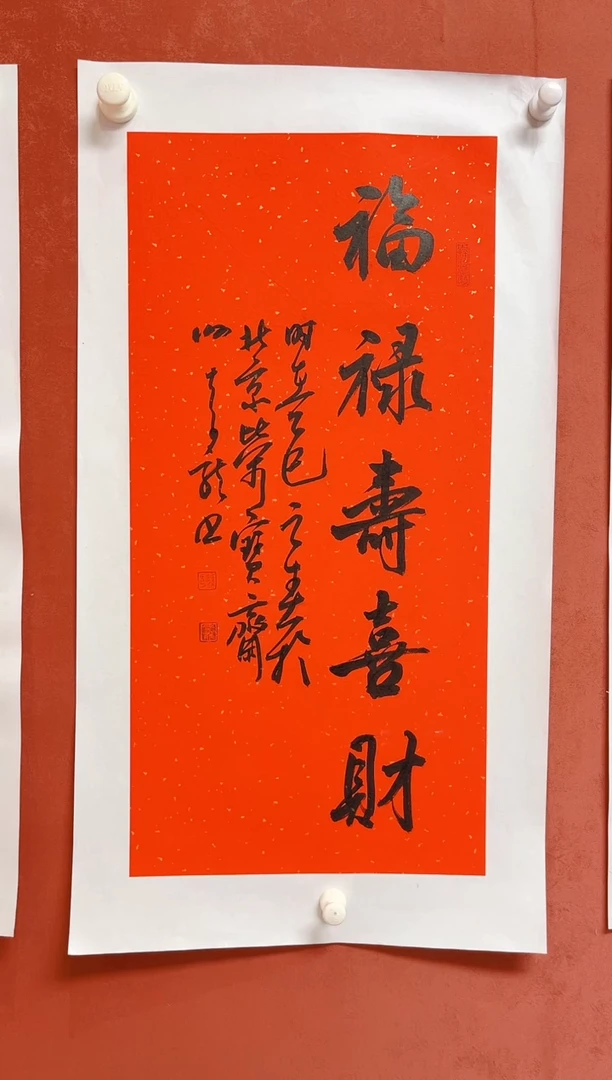 福禄壽喜財
時在乙巳之春於
北京榮寶齋